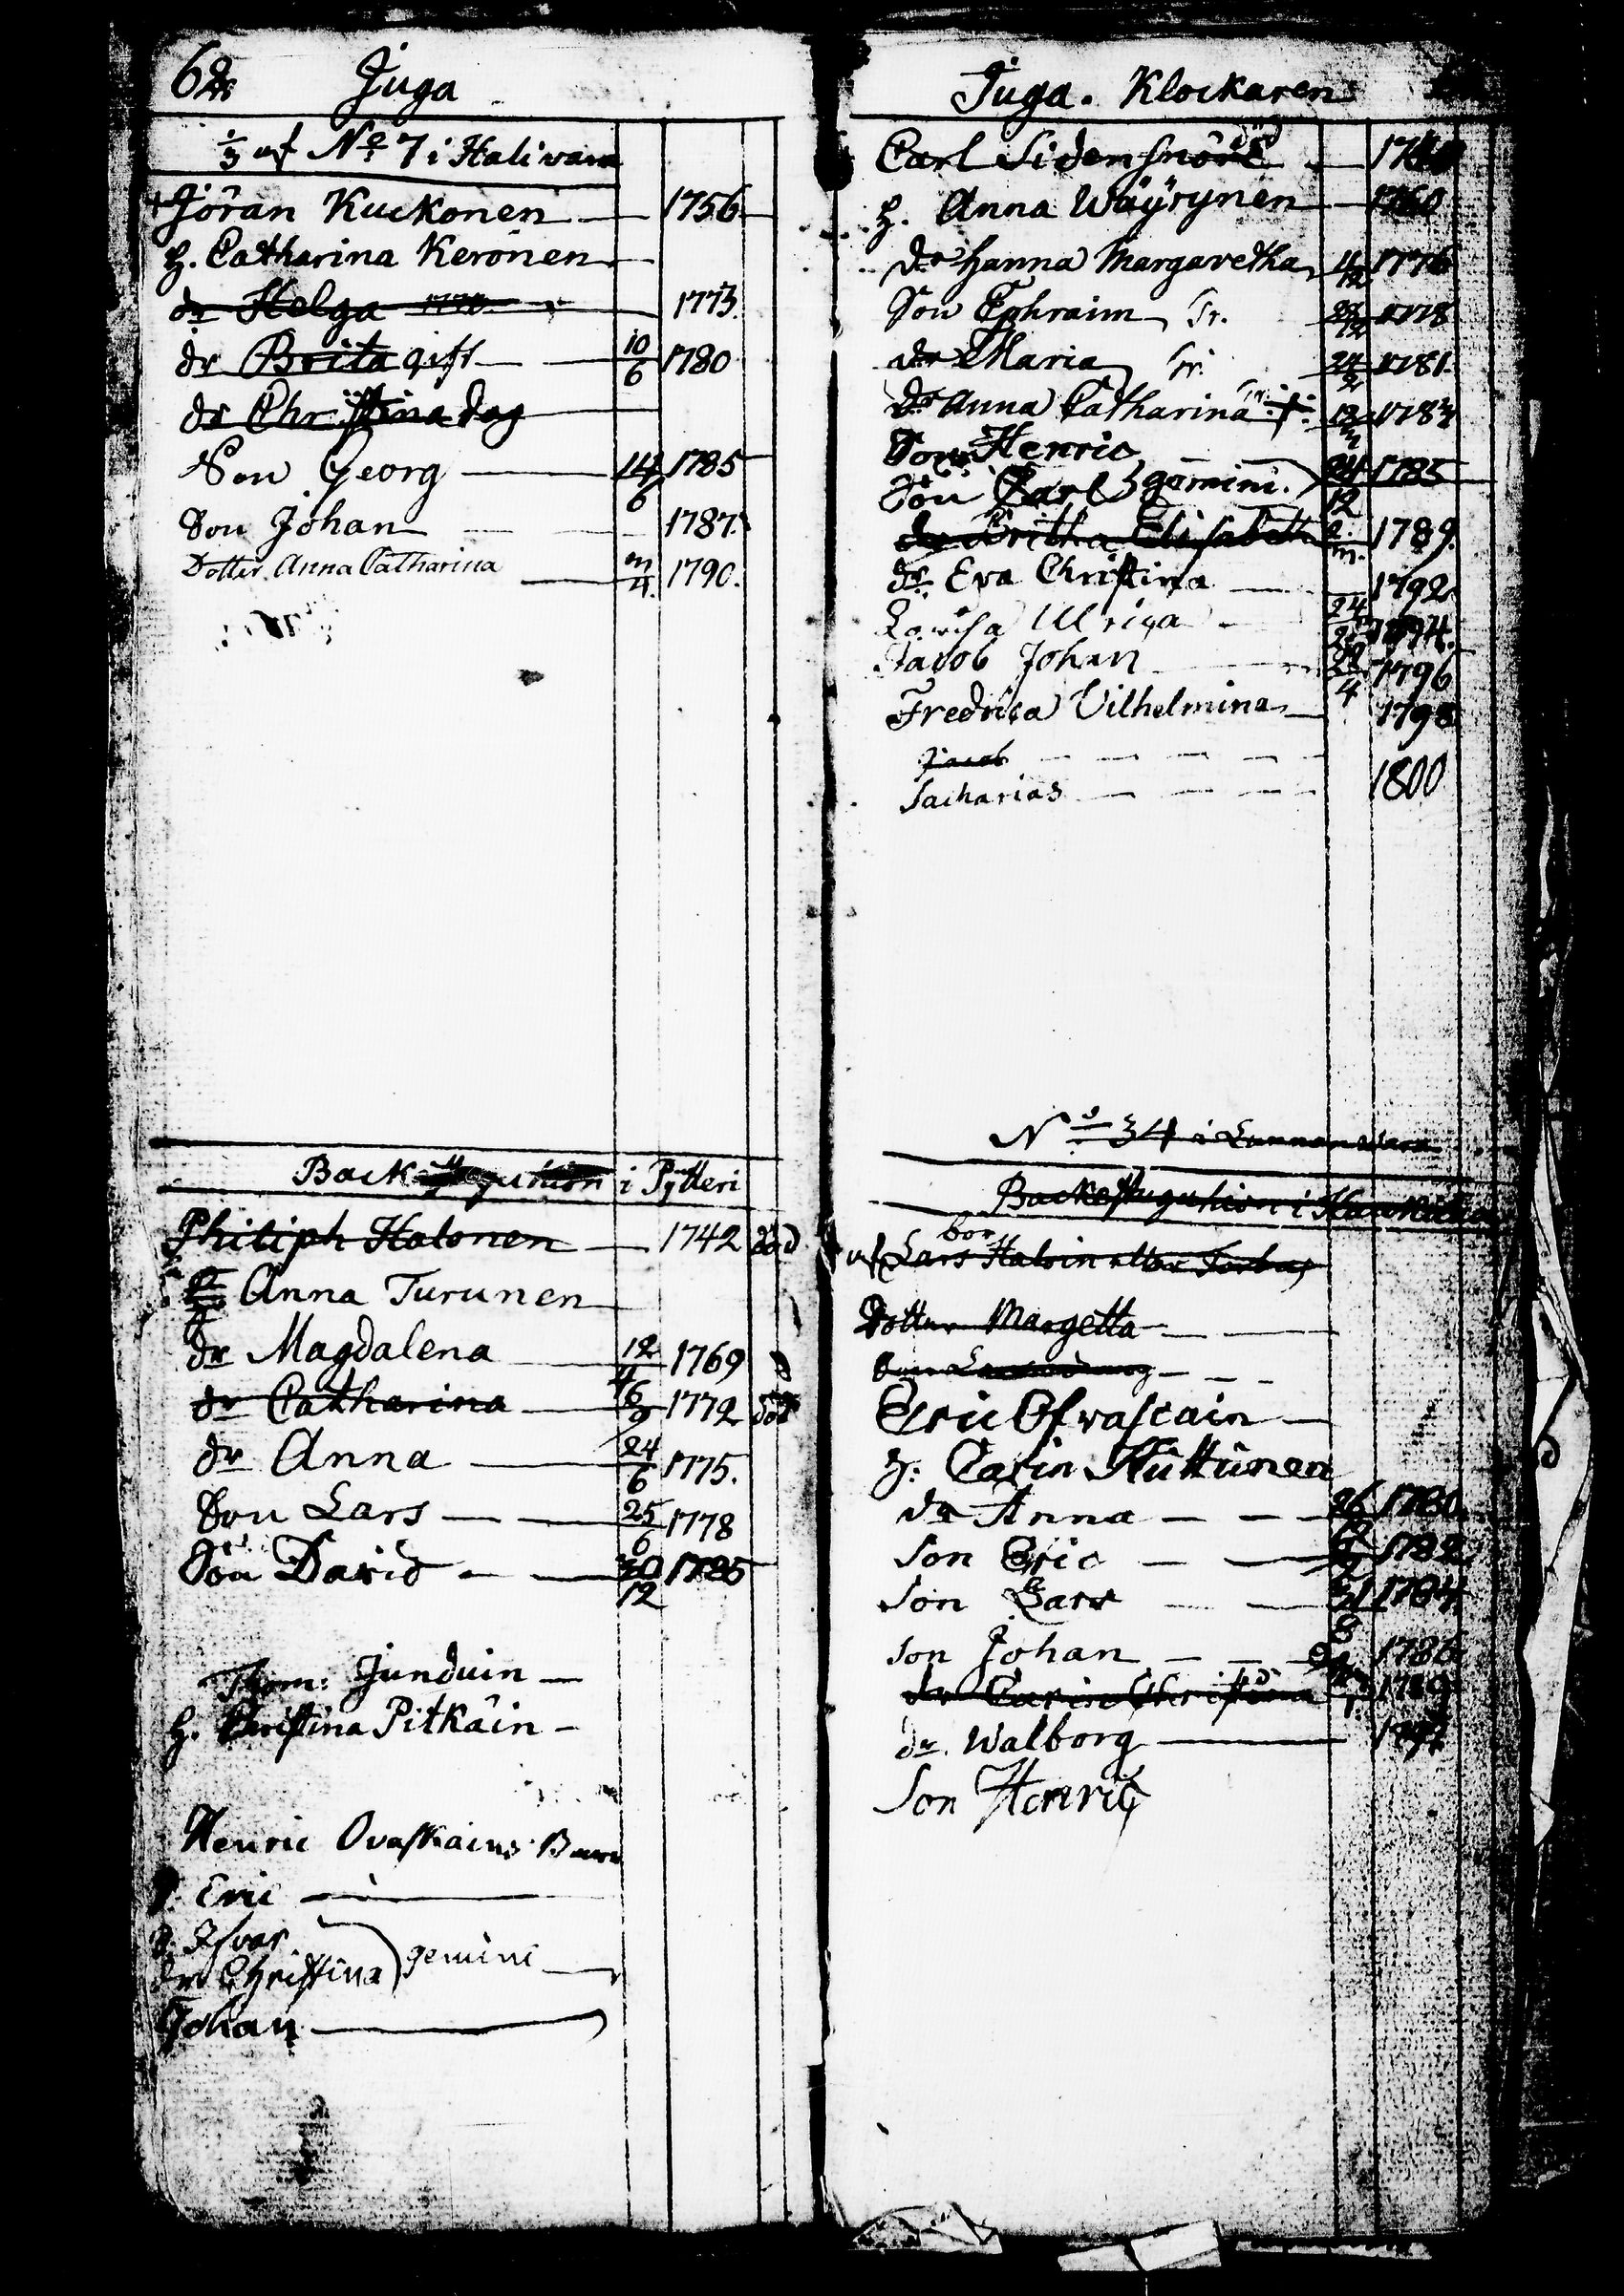 Juga
1/3 af No 7 i Halivara
Jöran Kuckonen 1756
h. Catharina Keronen
dr Helga 1773
dr Brita gift 10/6 1780
dr Christina dog
Son Georg 14/6 1785
Son Johan 1787
Dotter Anna Catharina m/4 1790.
Back i Pytteri
Philiph Halonen 1742 död
Anna Turunen
dr Magdalena 1769
dr Catharina 1772 död
dr Anna 24/6 1775.
Son Lars 25/6 1778
Son David 30/12 1785
Thom: Junduin
h. Christina Pitkäin
Henric Ovaskains Barn
Eric
Christina gemini
Johan
Juga. Klockaren
Carl Sidensnöre död
h. Anna Wäyrynen 1760
dr Hanna Margaretha 1776
Son Ephraim 1778
dr Maria 1781.
dr Anna Catharina †
Son Henric
Son Carl gemini. 24/12 1785
dr Britha Elisabeth 1789.
dr Eva Christina 1792
Lovisa Ulrica
Jacob Johan 1796
Fredrica Vilhelmina 1798
Jacob
Sacharias 1800
No 34 i
Backstuguhion i
bor
Lars
Dotter Margetta
Eric Ofvascain
h: Carin Huttunen
dr Anna 26 1780
Son Eric 1782
Son Lars 1784
Son Johan 1786
dr Carin Christina 1789
dr. Walborg
Son Henric